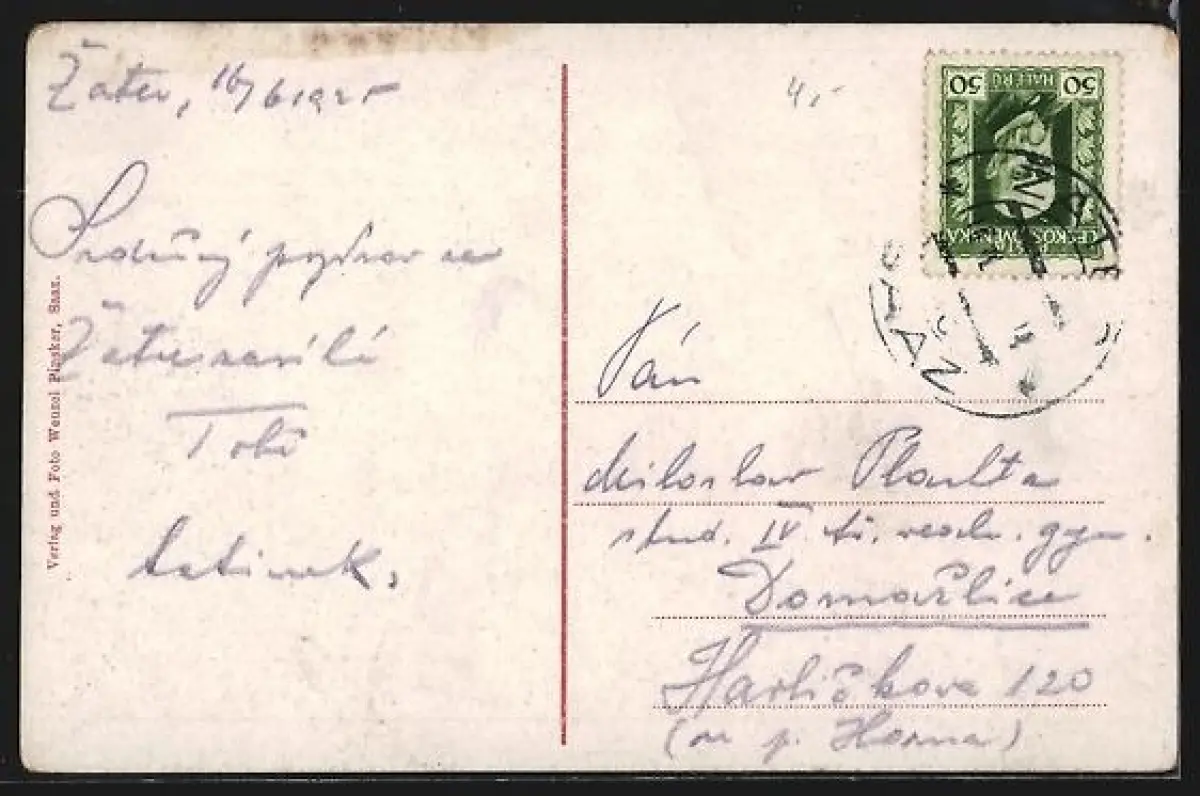 Žatec, 16/6 1925
Srdečný pozdrav ze
Žatce zasílá
Tobě
tatínek.
Verlag und Foto Wenzel Plasker, Saaz.
4,-
50 HALÉŘŮ 50
ČESKOSLOVENSKÁ
Pán
Miloslav Plachta
stud. IV. tř. gym.
Domažlice
Havlíčkova 120
(u p. Horna)